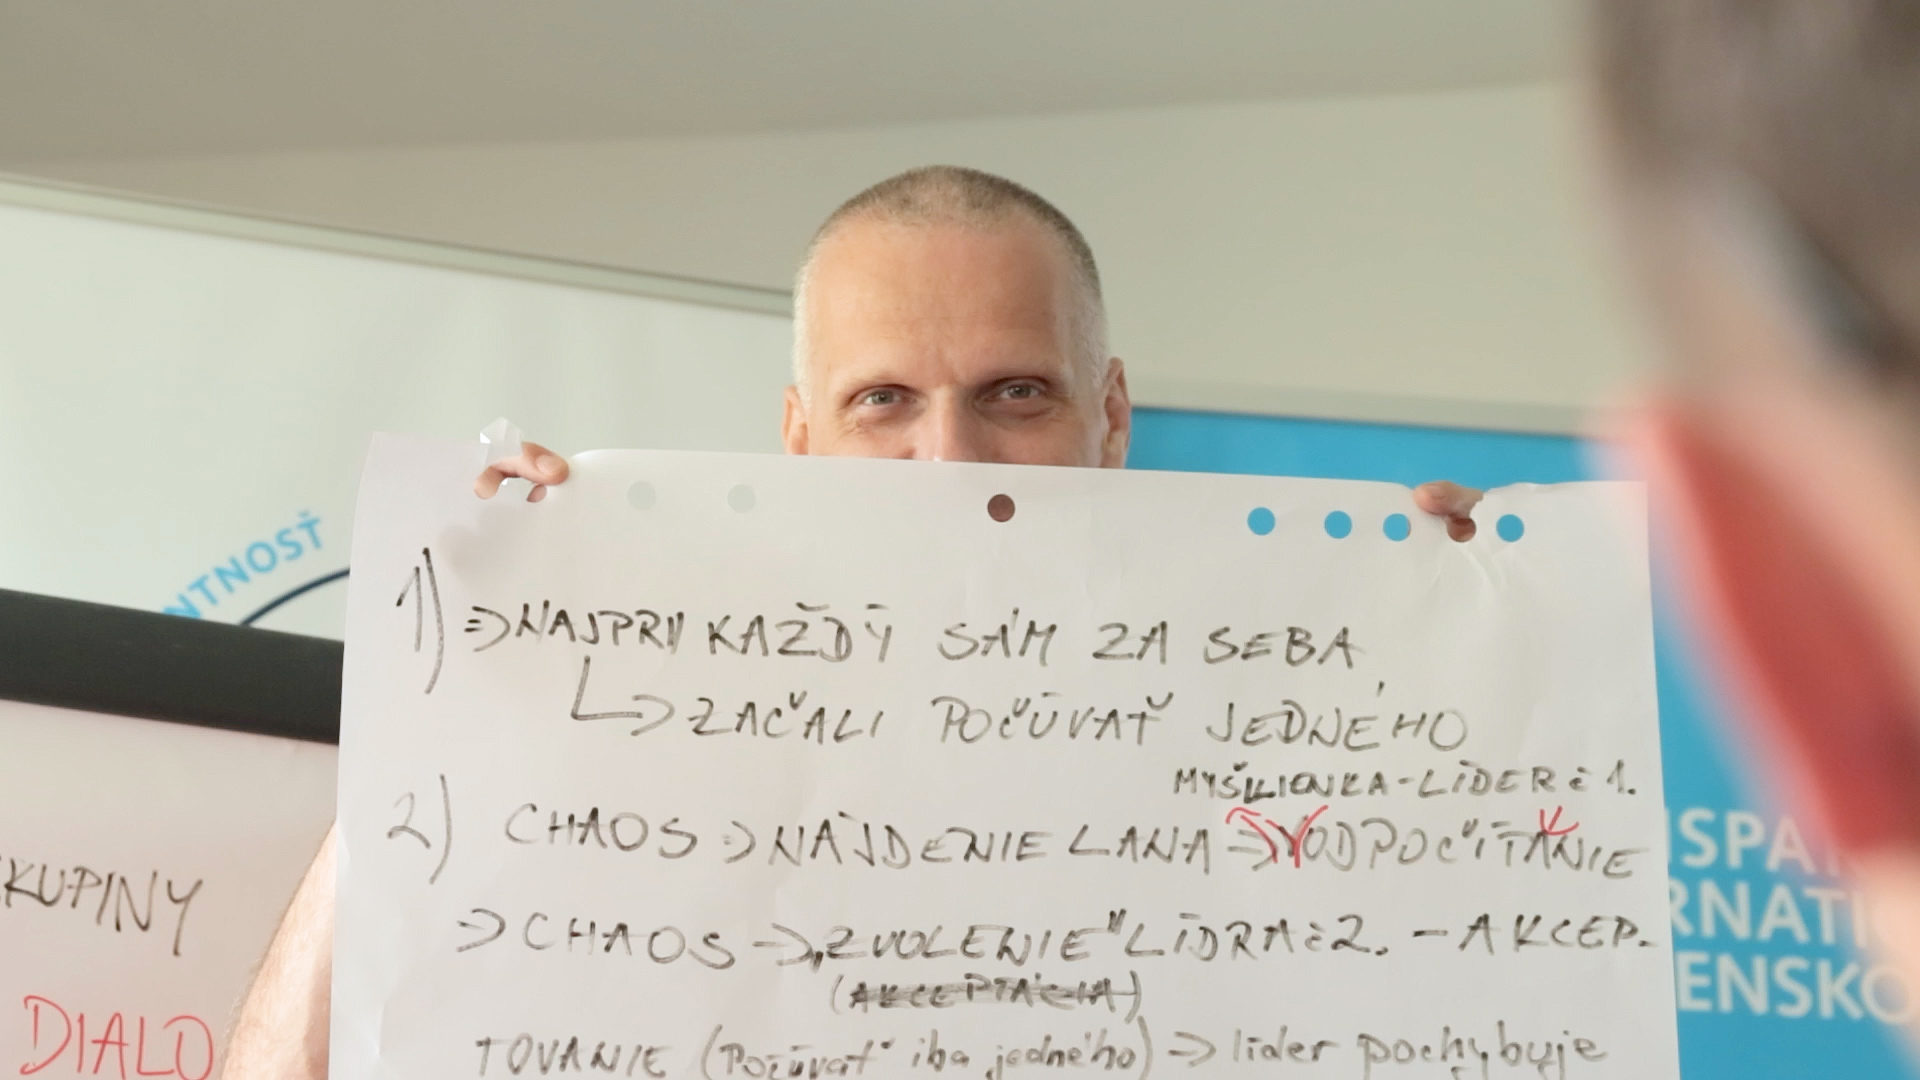 NTNOSŤ
1) => NAJPRV KAŽDÝ SÁM ZA SEBA,
↳ ZAČALI POČÚVAŤ JEDNÉHO
MYŠLIENKA-LÍDER č 1.
2) CHAOS => NÁJDENIE LANA => ODPOČÍTANIE
=> CHAOS -> „ZVOLENIE" LÍDRA č 2. - AKCEP-
(AKCEPTÁCIA)
TOVANIE (Počúvať iba jedného) => líder pochybuje
KUPINY
DIALO
SPA
RNATI
ENSKO